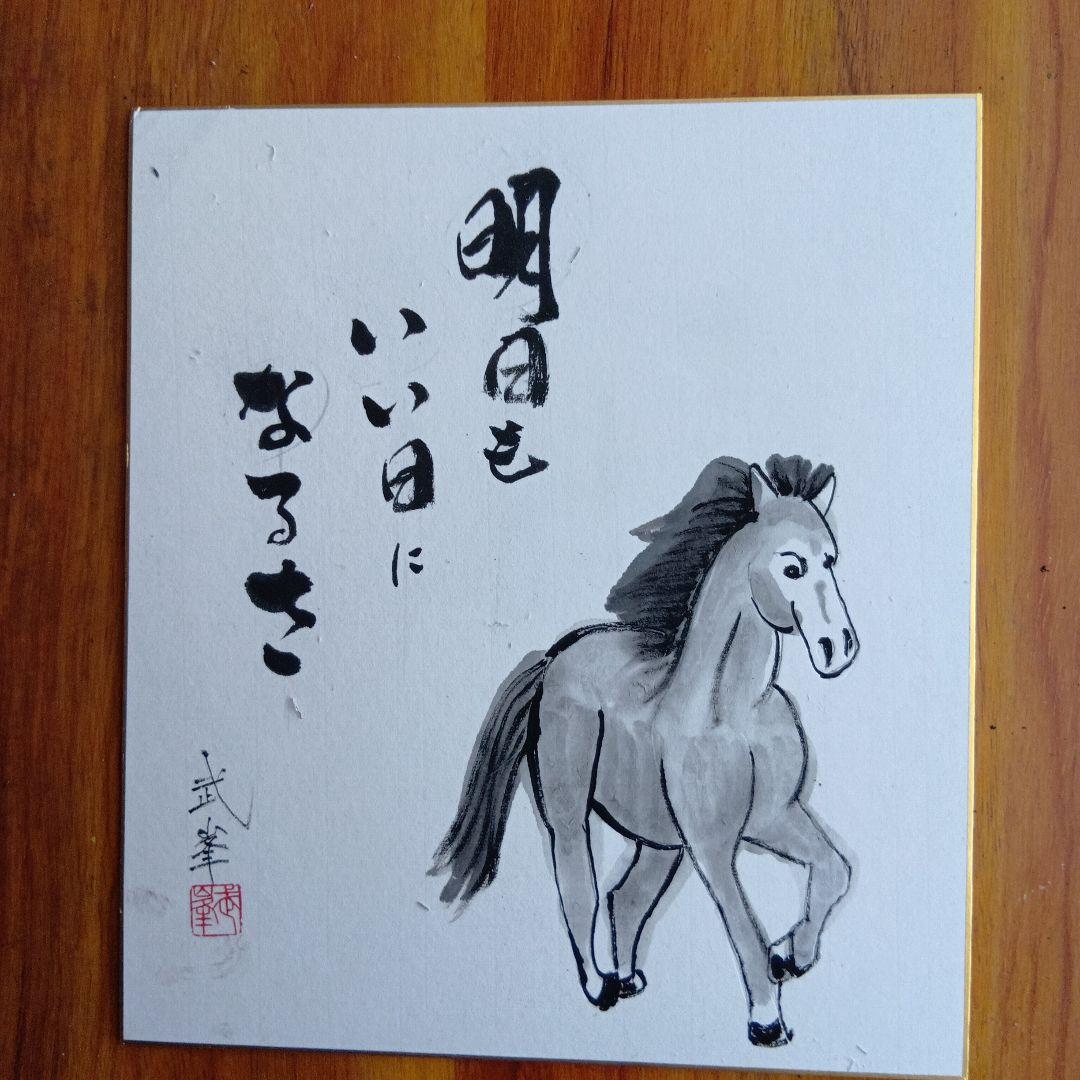 明日も
いい日に
なるさ
武峯
武峯